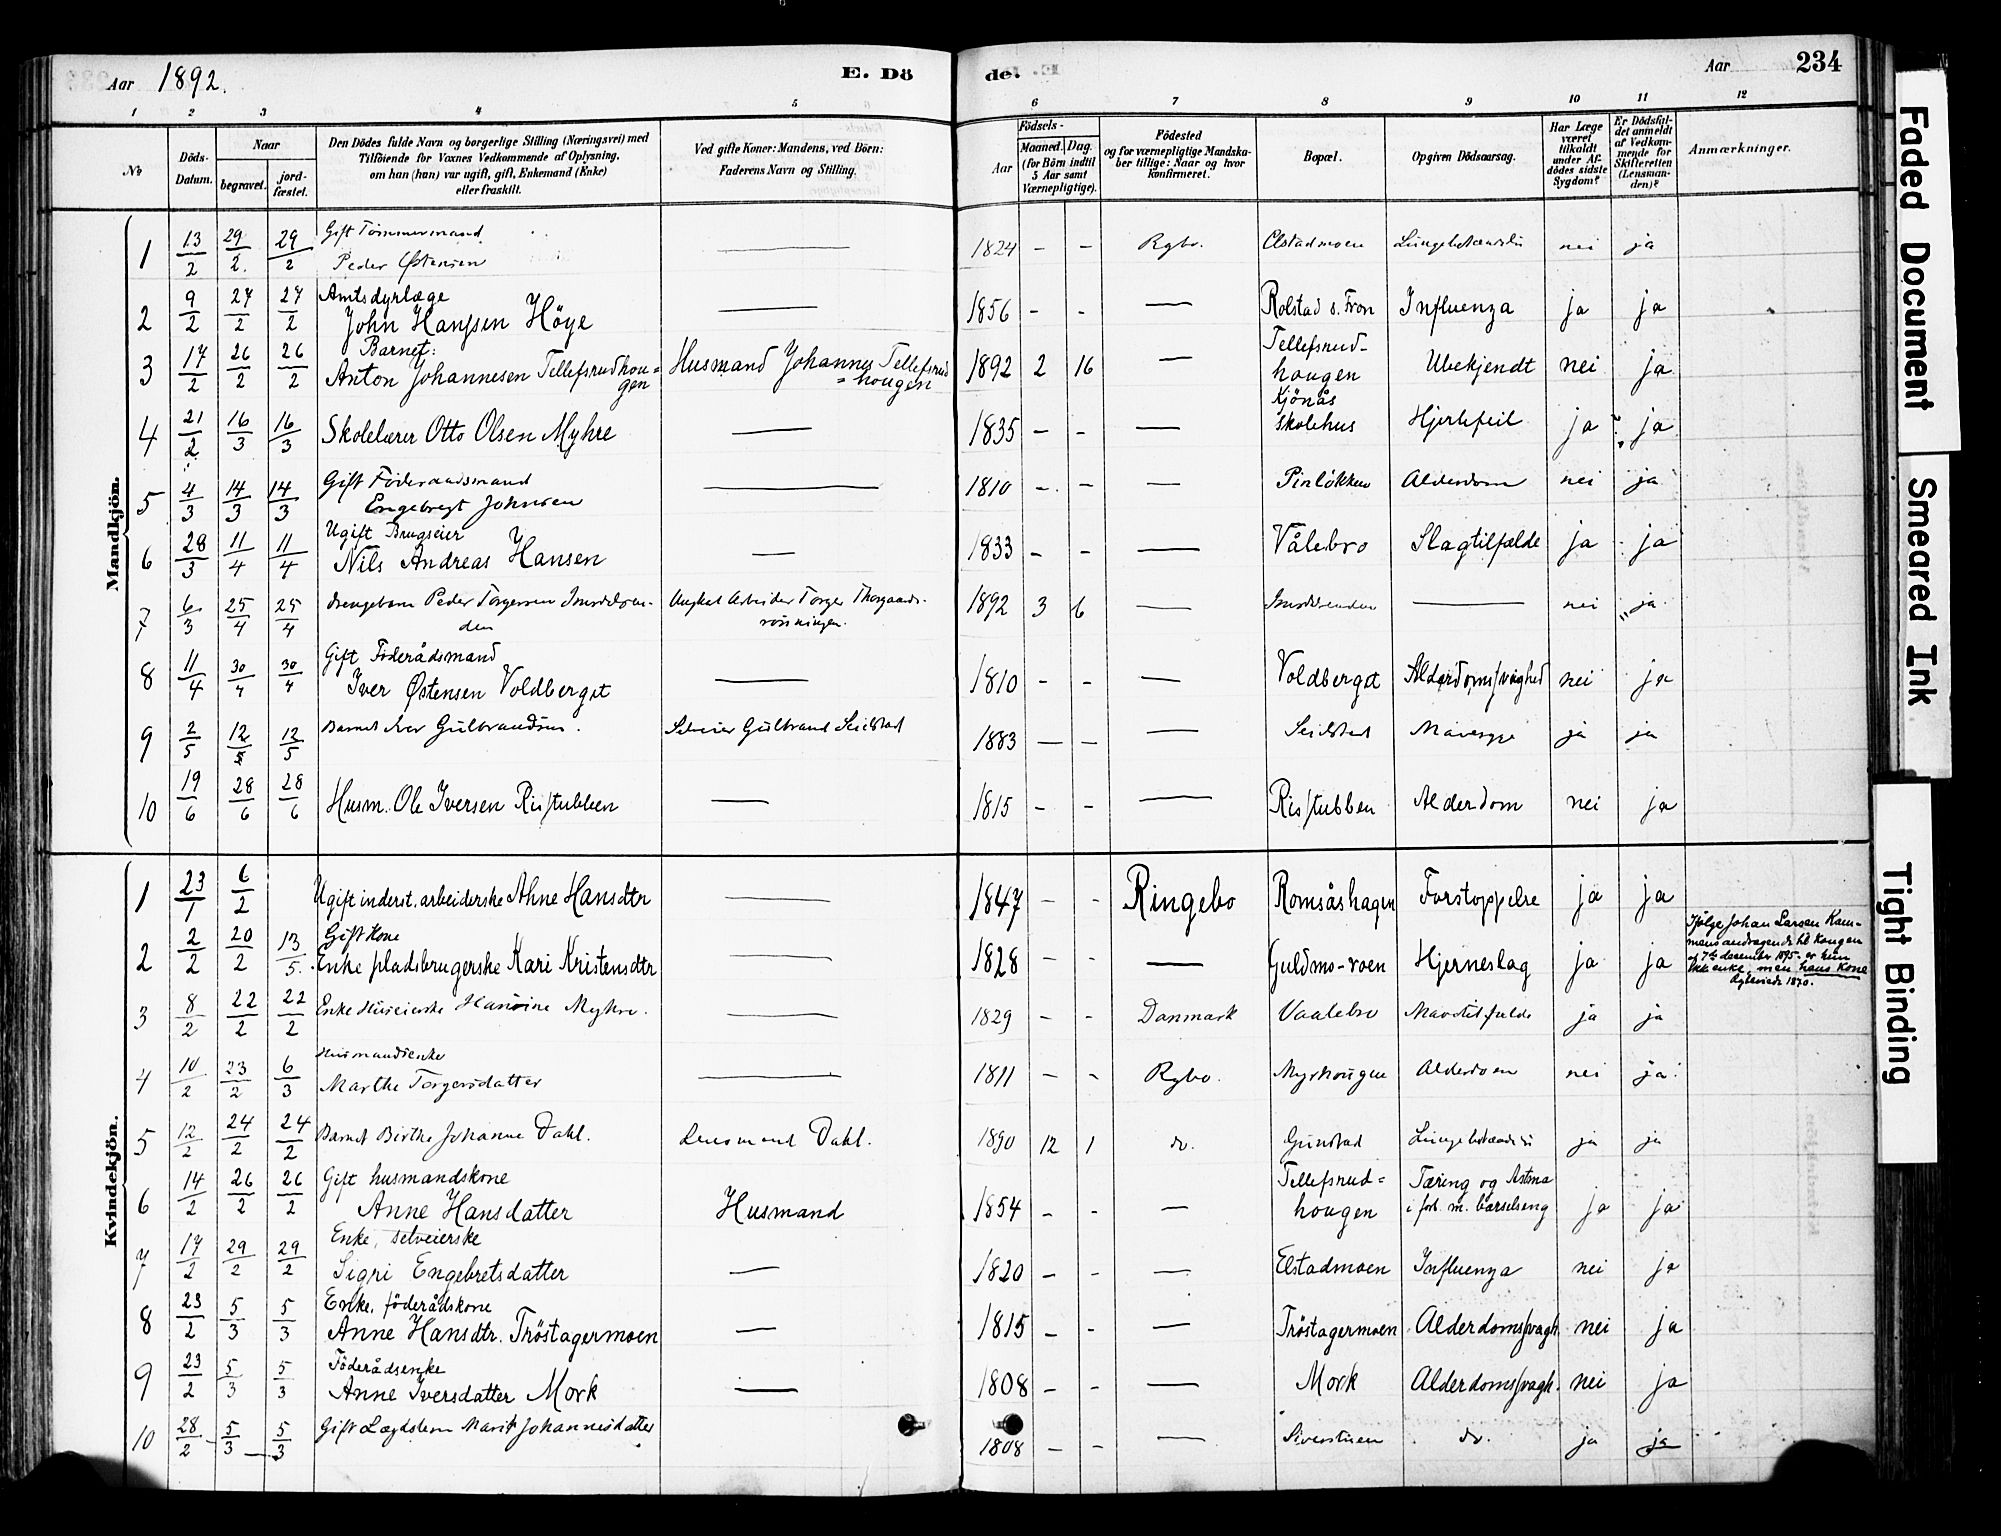 Aar 1892. E. Dö
de. Aar 234
1 2 3 4 5 6 7 8 9 10 11 12
No Döds-Datum. Naar begravet. jord-fæstet. Den Dödes fulde Navn og borgerlige Stilling (Næringsvei) med Tilföiende for Voxnes Vedkommende af Oplysning, om han (hun) var ugift, gift, Enkemand (Enke) eller fraskilt. Ved gifte Koner: Mandens, ved Börn: Faderens Navn og Stilling. Födsels- Aar Maaned. Dag. (for Börn indtil 5 Aar samt Værnepligtige). Födested og for værnepligtige Mandskaber tillige: Naar og hvor konfirmeret. Bopæl. Opgiven Dödsaarsag. Har Læge været tilkaldt under Afdödes sidste Sygdom? Er Dödsfaldet anmeldt af Vedkommende for Skifteretten (Lensmanden)? Anmærkninger.
Mandkjön.
1 13/2 29/2. 29/2 Gift Tömmermand Peder Østensen — 1824 - - Rgbo. Elstadmoen Lungebetændelse nei ja
2 9/2 27/2 27/2 Amtsdyrlæge John Hansen Höye — 1856 - - — Rolstad s. Fron Influenza ja ja
3 17/2 26/2 26/2 Barnet: Anton Johannesen Tellefsrudhou=gen Husmand Johannes Tellefsrud=hougen 1892 2 16 — Tellefsrud-hougen Ubekjendt nei ja
4 21/2 16/3 16/3 Skolelærer Otto Olsen Myhre — 1835 - - — Kjönås skolehus Hjertefeil ja ja
5 4/3 14/3 14/3 Gift Föderaadsmand Engebregt Johnsen — 1810 - - — Pinlökken Alderdom nei ja
6 28/3 11/4 11/4 Ugift Brugseier Nils Andreas Hansen — 1833 - - — Vålebro Slagtilfælde ja ja
7 6/3 25/4 25/4 Drengebarn Peder Torgersen Ungkarl Arbeider Torger 1892 3 6 — nei ja
8 11/4 30/4 30/4 Gift Föderådsmand Iver Østensen Voldberget — 1810 - - — Voldberget Alderdomssvaghed nei ja
9 2/5 12/5 12/5 Barnet Iver Gulbrandsen. Selveier Gulbrand Seilstad 1883 — — — Seilstad ja ja
10 19/6 28/6 28/6 Husm. Ole Iversen Risstubben — 1815 - - — Risstubben Alderdom nei ja
Kvindekjön.
1 23/1 6/2 Ugift inderst. arbeiderske Ahne Hansdtr — 1847 - - Ringebo Romsåshagen Forstoppelse ja ja
2 2/2 20/2 13/5. Gift Kone Enke pladsbrugerske Kari Kristensdtr — 1828 - - — Guldmo-roen Hjerneslag ja ja Ifølge Johan Larsen Kammens andragende til Kongen af 7de desember 1895 er hun ikke enke, men hans Kone 1870.
3 8/2 22/2 22/2 Enke Huseierske Hansine Myhre. — 1829 - - Danmark Vaalebro Mavetilfælde ja ja
4 10/2 23/2 6/3 Husmandsenke Marthe Torgersdatter — 1811 - - Rgbo. Myrhougen Alderdom nei ja
5 12/2 24/2 24/2 Barnet Birthe Johanne Dahl. Lensmand Dahl. 1890 12 1 do. Gunstad Lungebetændelse ja ja
6 14/2 26/2 26/2 Gift husmandskone Anne Hansdatter Husmand 1854 - - — Tellefsrud=hougen Tæring og Astma i forb. m. barselseng ja ja
7 17/2 29/2 29/2 Enke, selveierske Sigri Engebretsdatter — 1820 - - — Elstadmoen Influenza nei ja
8 23/2 5/3 5/3 Enke, föderådskone Anne Hansdtr. Tröstagermoen — 1815 - - — Tröstagermoen Alderdomssvagh. nei ja
9 23/2 5/3 5/3 Föderådsenke Anne Iversdatter Mork — 1808 - - — Mork Alderdomssvagh. nei ja
10 28/2 5/3 5/3 Gift Lægdslem Marit Johannesdatter 1808 - - — Siverstuen do. ja ja
Faded Document
Smeared Ink
Tight Binding